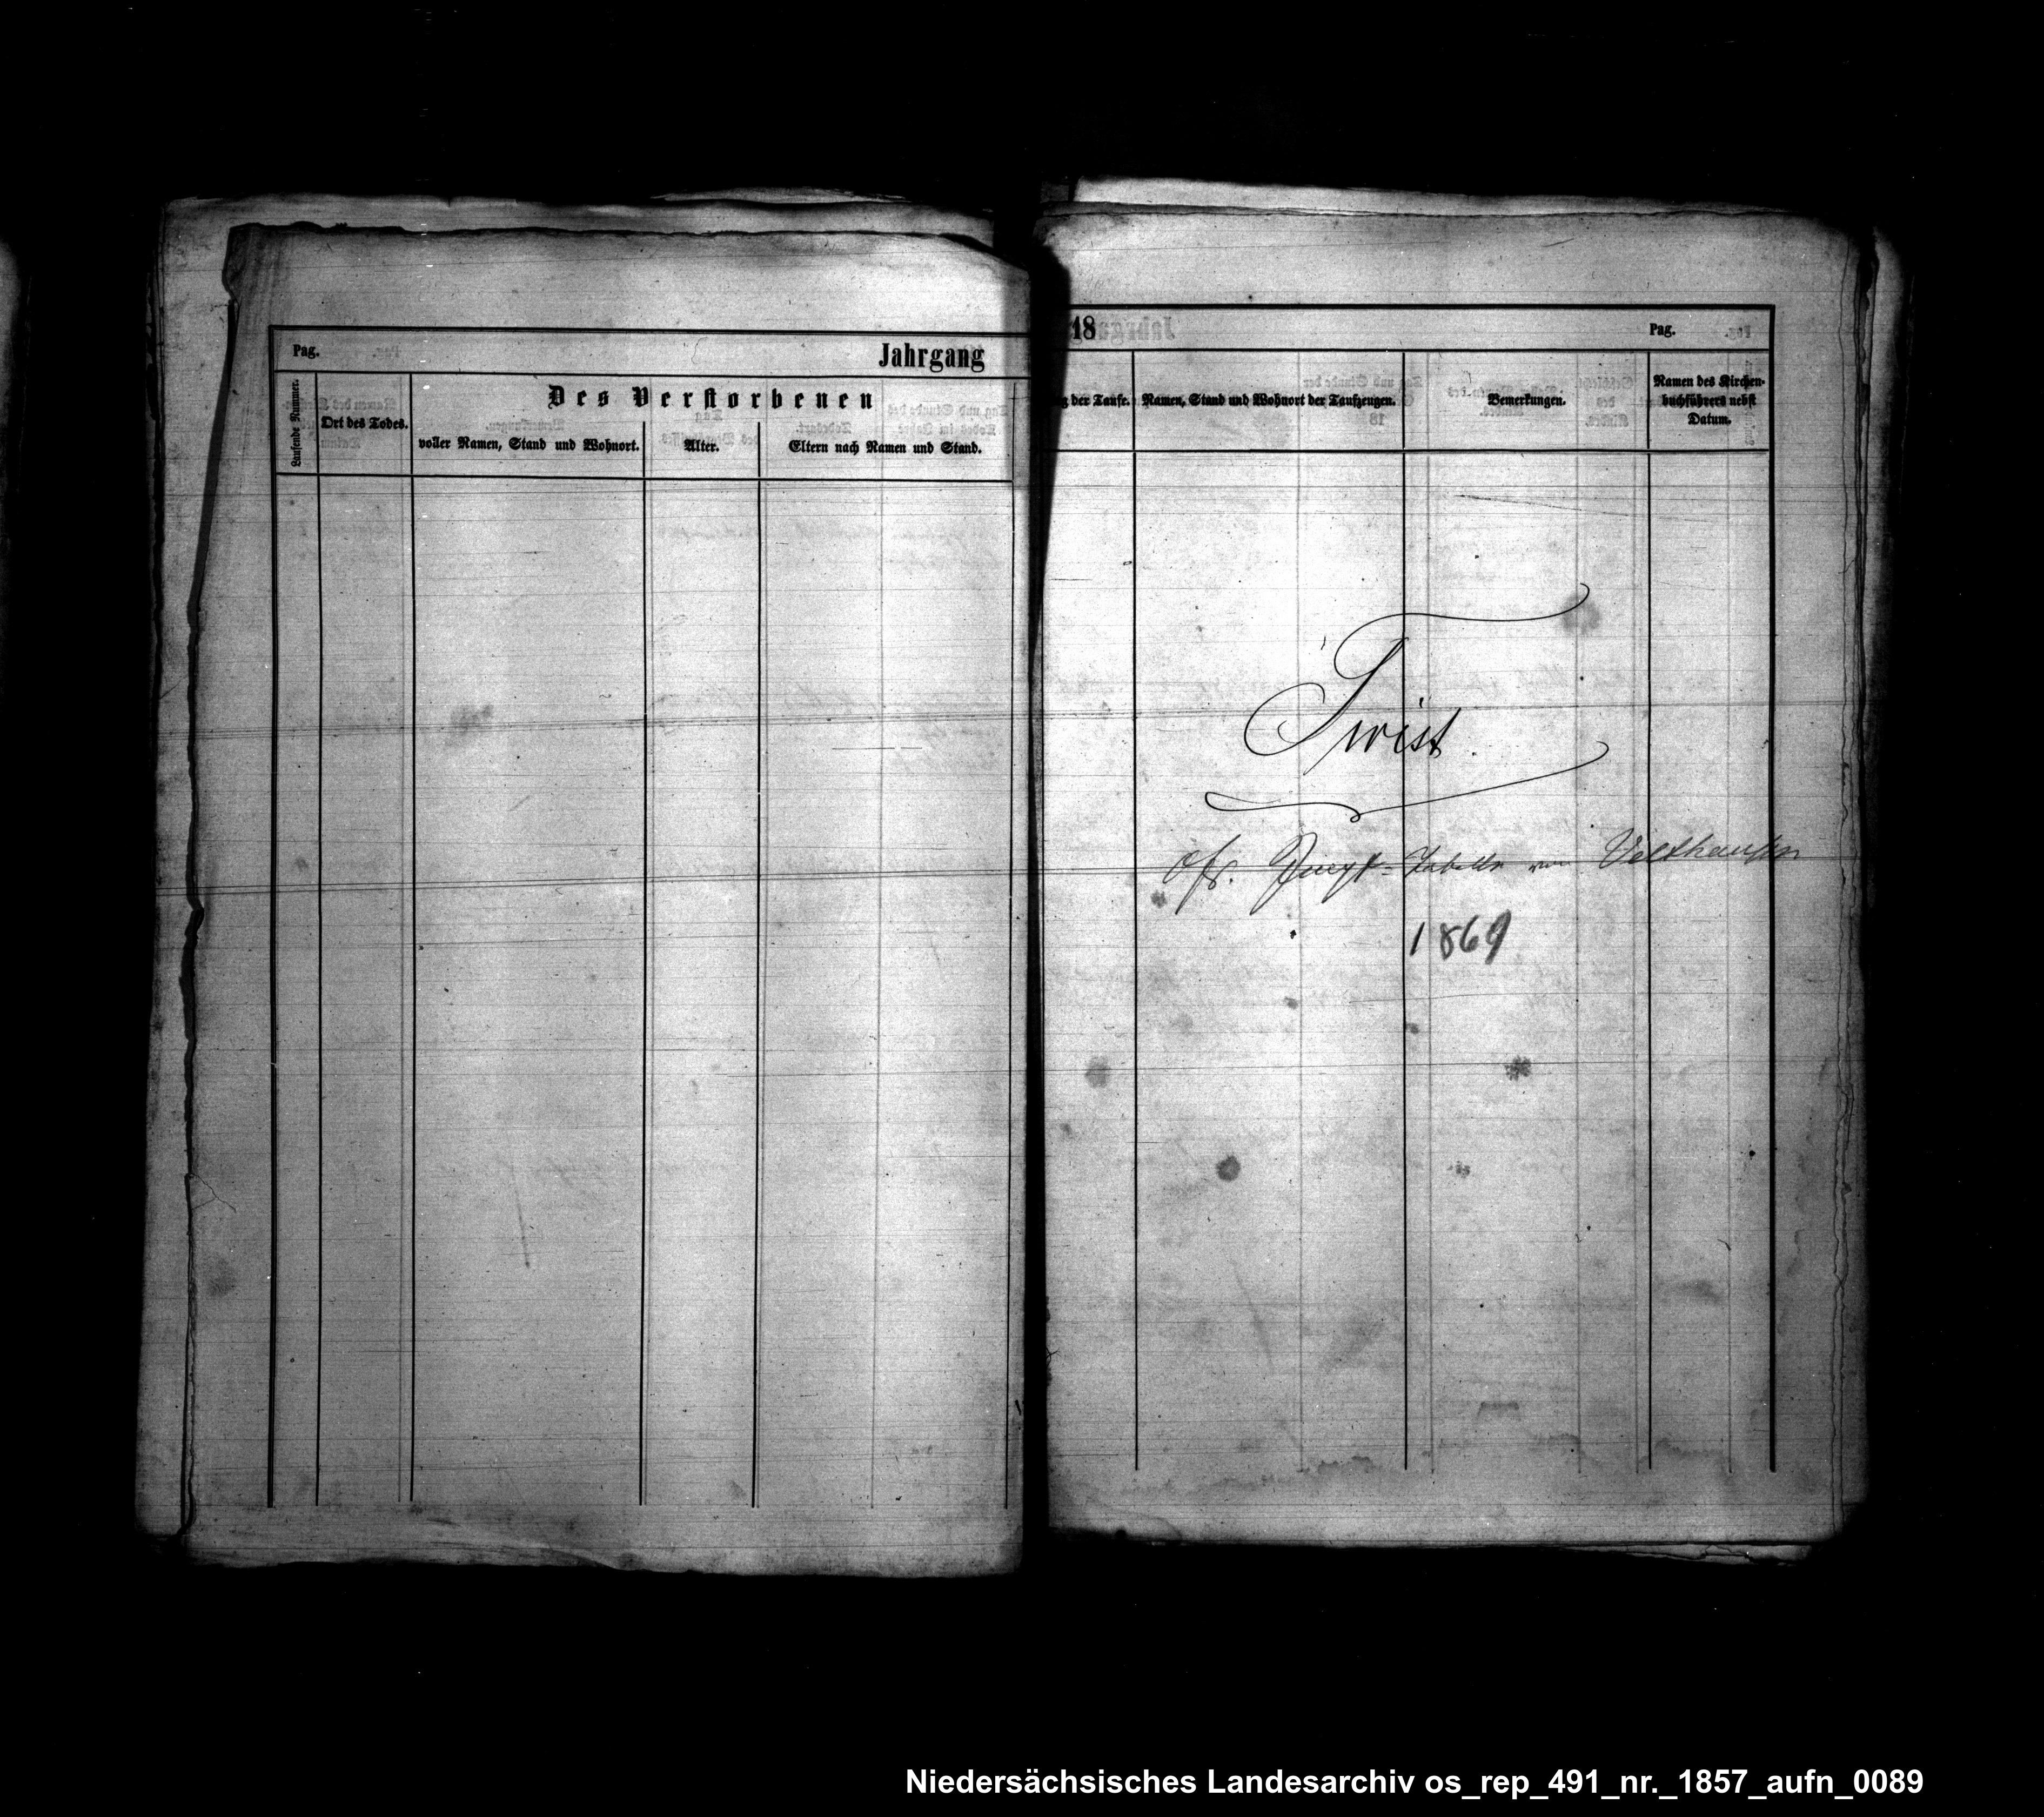 Pag.
Jahrgang
Laufende Nummer.
Ort des Todes.
Des Verstorbenen
voller Namen, Stand und Wohnort.
Alter.
Eltern nach Namen und Stand.
18
Pag.
der Taufe.
Namen, Stand und Wohnort der Taufzeugen.
Bemerkungen.
Namen des Kirchen-
buchführers nebst
Datum.
Twist
Tabelle von Velthausen
1869
Niedersächsisches Landesarchiv os_rep_491_nr._1857_aufn_0089